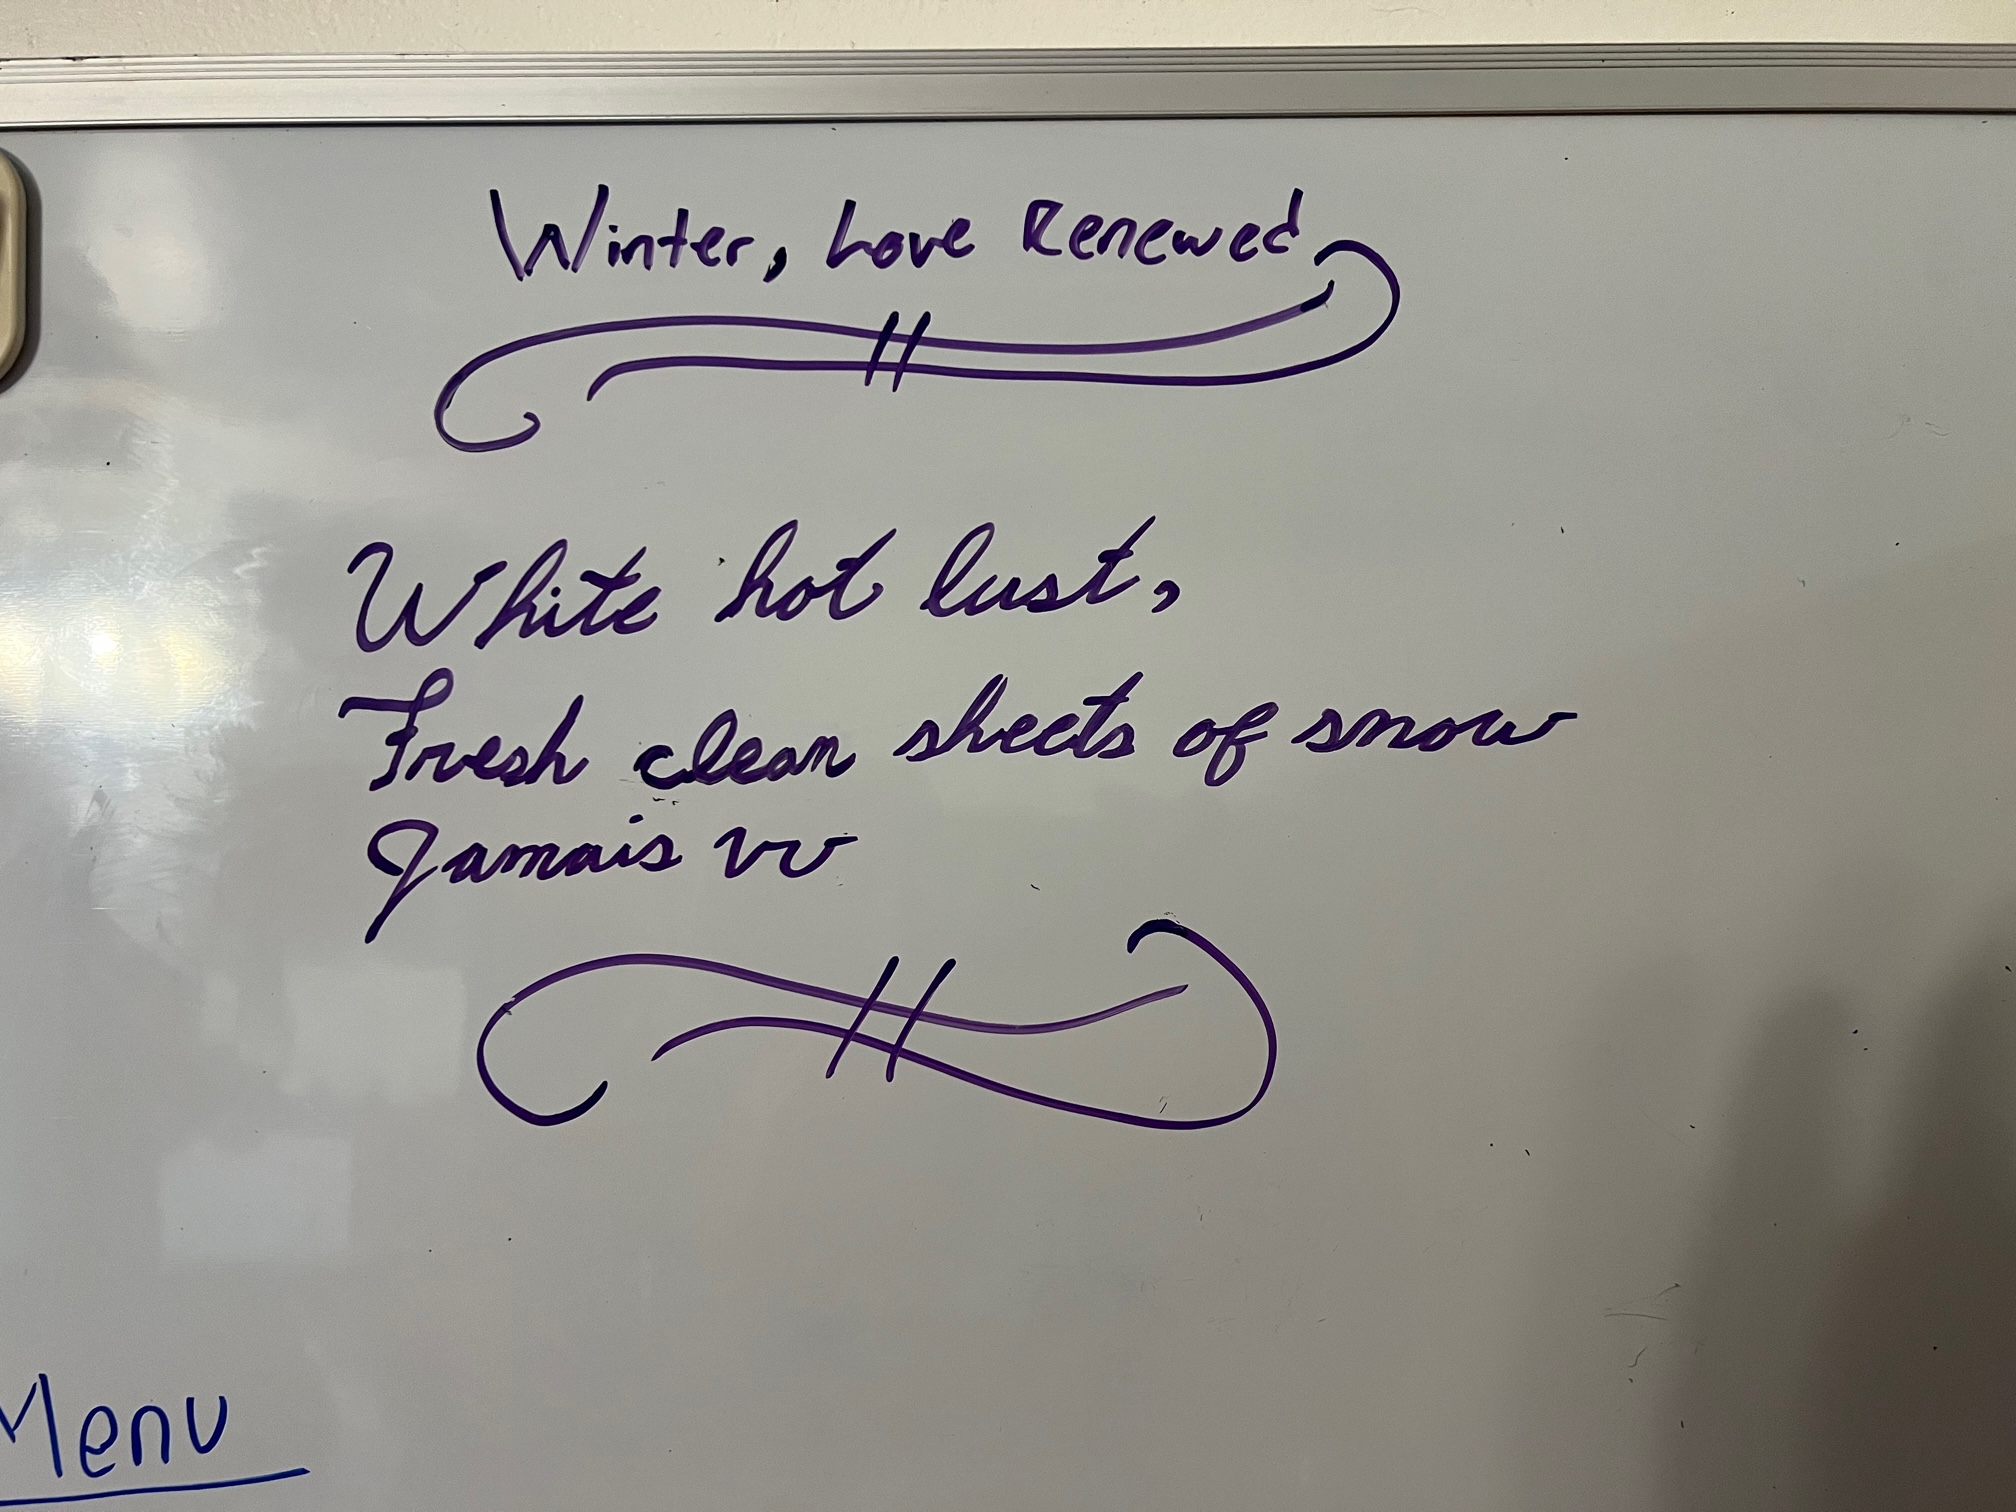 Winter, Love Renewed
White hot lust,
Fresh clean sheets of snow
Jamais vu
Menu